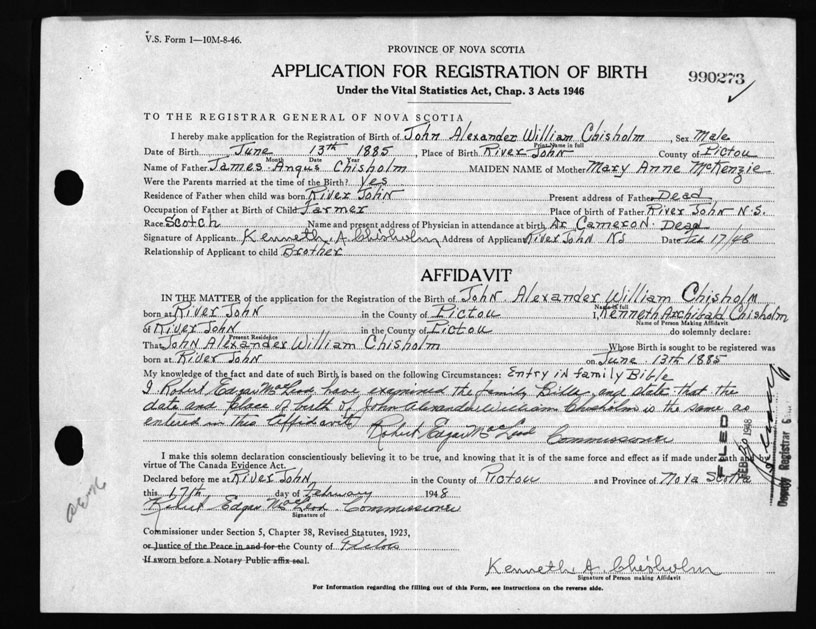 V.S. Form 1—10M-8-46.
PROVINCE OF NOVA SCOTIA
APPLICATION FOR REGISTRATION OF BIRTH
990273
Under the Vital Statistics Act, Chap. 3 Acts 1946
TO THE REGISTRAR GENERAL OF NOVA SCOTIA
I hereby make application for the Registration of Birth of John Alexander William Chisholm, Sex Male
Print Name in full
Date of Birth June 13th 1885, Place of Birth River John County of Pictou
Month Date Year
Name of Father James Angus Chisholm MAIDEN NAME of Mother Mary Anne McKenzie
Were the Parents married at the time of the Birth? Yes
Residence of Father when child was born River John Present address of Father Dead
Occupation of Father at Birth of Child Farmer Place of birth of Father River John N.S.
Race Scotch Name and present address of Physician in attendance at birth Dr Cameron. Dead
Signature of Applicant Kenneth. A. Chisholm Address of Applicant River John NS Date Feb 17/48
Relationship of Applicant to child Brother
AFFIDAVIT
IN THE MATTER of the application for the Registration of the Birth of John Alexander William Chisholm
Name in full
born at River John in the County of Pictou I, Kenneth Archibald Chisholm
Name of Person Making Affidavit
of River John in the County of Pictou do solemnly declare:
Present Residence
That John Alexander William Chisholm Whose Birth is sought to be registered was
born at River John on June 13th 1885
My knowledge of the fact and date of such Birth is based on the following Circumstances: Entry in family Bible
I Robert Edgar MacLeod have examined the family Bible and state that the
date and place of birth of John Alexander William Chisholm is the same as
entered in this affidavit Robert Edgar MacLeod Commissioner
I make this solemn declaration conscientiously believing it to be true, and knowing that it is of the same force and effect as if made under oath and by
virtue of The Canada Evidence Act.
Declared before me at River John in the County of Pictou and Province of Nova Scotia
this 17th day of February 1948
Robert Edgar MacLeod Commissioner
Signature of
Commissioner under Section 5, Chapter 38, Revised Statutes, 1923,
or Justice of the Peace in and for the County of Pictou
If sworn before a Notary Public affix seal.
Kenneth A Chisholm
Signature of Person making Affidavit
For Information regarding the filling out of this Form, see instructions on the reverse side.
FILED
FEB 1948
Deputy Registrar G